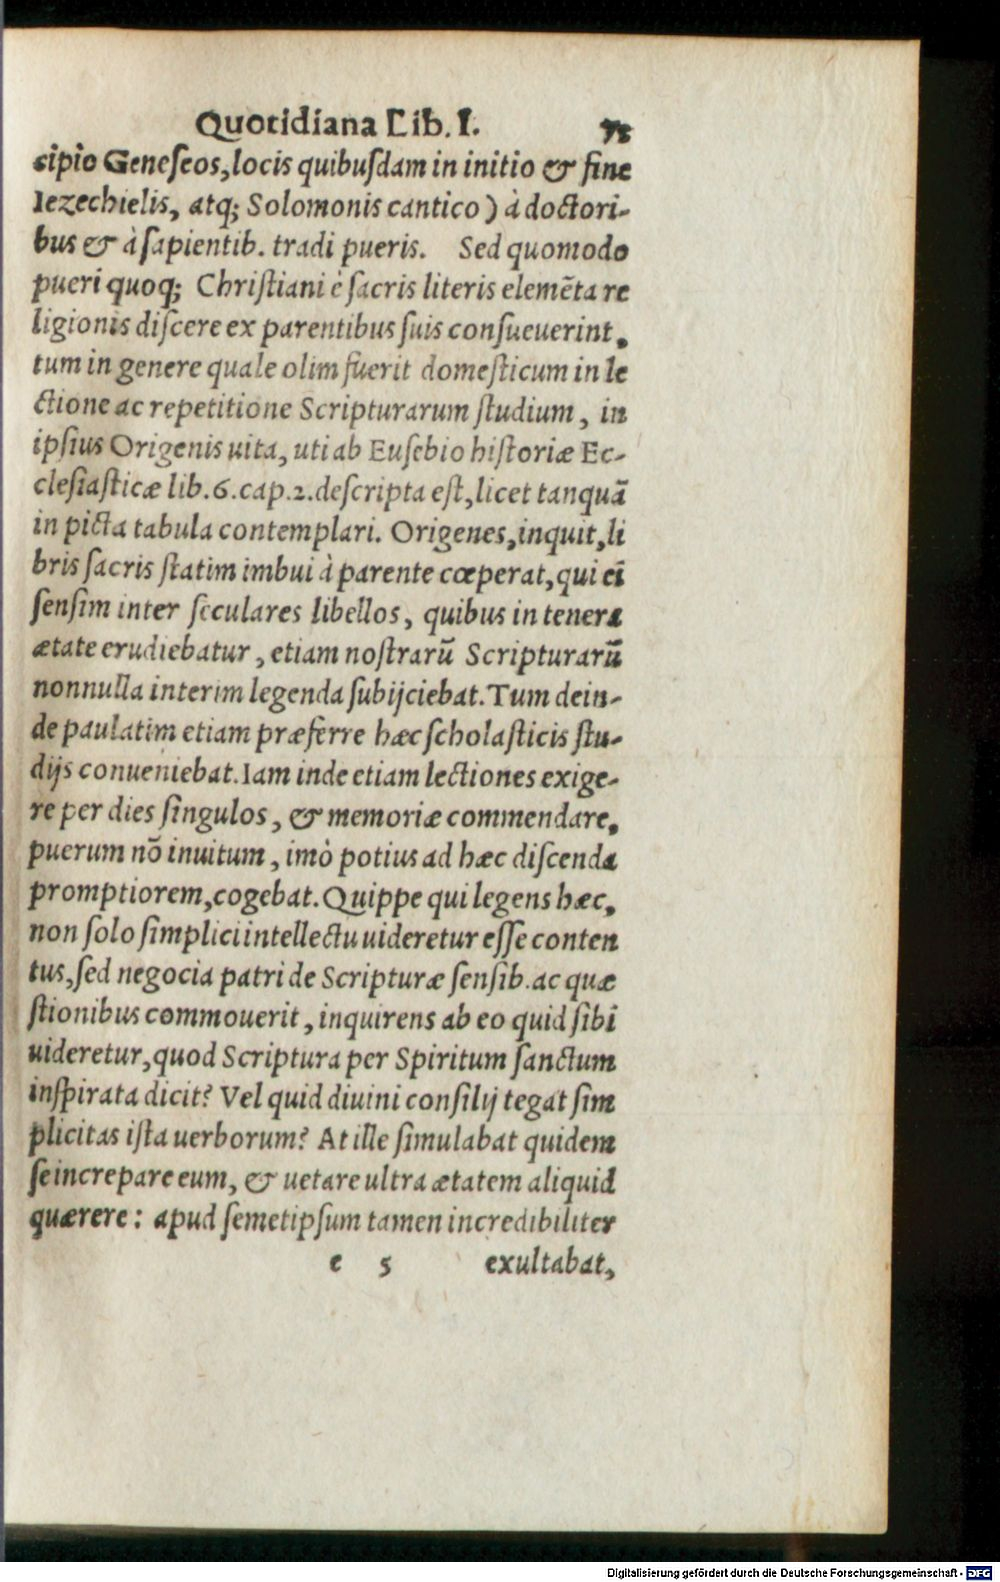 Quotidiana Lib. I. 73
cipio Geneſeos, locis quibuſdam in initio & fine
Iezechielis, atq; Solomonis cantico) à doctori-
bus & à ſapientib. tradi pueris. Sed quomodo
pueri quoq; Chriſtiani è ſacris literis elemẽta re
ligionis diſcere ex parentibus ſuis conſueuerint,
tum in genere quale olim fuerit domeſticum in le
ctione ac repetitione Scripturarum ſtudium, in
ipſius Origenis uita, uti ab Euſebio hiſtoriæ Ec-
cleſiaſticæ lib. 6. cap. 2. deſcripta eſt, licet tanquã
in picta tabula contemplari. Origenes, inquit, li
bris ſacris ſtatim imbui à parente cœperat, qui eĩ
ſenſim inter ſeculares libellos, quibus in tenera
ætate erudiebatur, etiam noſtrarũ Scripturarũ
nonnulla interim legenda ſubijciebat. Tum dein-
de paulatim etiam præferre hæc ſcholaſticis ſtu-
dijs conueniebat. Iam inde etiam lectiones exige-
re per dies ſingulos, & memoriæ commendare,
puerum nõ inuitum, imò potius ad hæc diſcenda
promptiorem, cogebat. Quippe qui legens hæc,
non ſolo ſimplici intellectu uideretur eſſe conten
tus, ſed negocia patri de Scripturæ ſenſib. ac quæ
ſtionibus commouerit, inquirens ab eo quid ſibi
uideretur, quod Scriptura per Spiritum ſanctum
inſpirata dicit? Vel quid diuini conſilij tegat ſim
plicitas iſta uerborum? At ille ſimulabat quidem
ſe increpare eum, & uetare ultra ætatem aliquid
quærere: apud ſemetipſum tamen incredibiliter
e 5 exultabat,
Digitalisierung gefördert durch die Deutsche Forschungsgemeinschaft - DFG